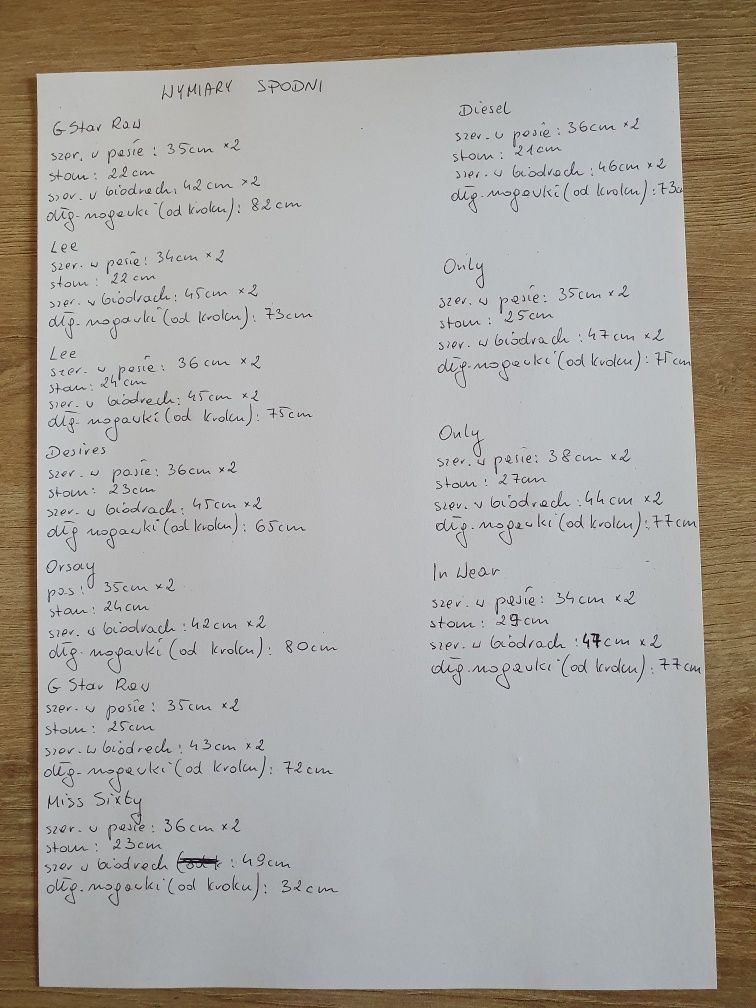 WYMIARY SPODNI
G Star Raw
szer. w pasie : 35cm ×2
stan : 22cm
szer. w biodrach: 42cm ×2
dłg. nogawki (od kroku) : 82cm
Lee
szer. w pasie : 34cm ×2
stan : 22cm
szer. w biodrach : 45cm ×2
dłg. nogawki (od kroku) : 73cm
Lee
szer. w pasie : 36cm ×2
stan : 24cm
szer. w biodrach : 45cm ×2
dłg. nogawki (od kroku) : 75cm
Desires
szer. w pasie : 36cm ×2
stan : 23cm
szer. w biodrach : 45cm ×2
dłg nogawki (od kroku) : 65cm
Orsay
pas : 35cm ×2
stan : 24cm
szer. w biodrach : 42cm ×2
dłg. nogawki (od kroku) : 80cm
G Star Raw
szer. w pasie : 35cm ×2
stan : 25cm
szer. w biodrach : 43cm ×2
dłg. nogawki (od kroku) : 72cm
Miss Sixty
szer. w pasie : 36cm ×2
stan : 23cm
szer w biodrach : 49cm
dłg. nogawki (od kroku) : 32cm
Diesel
szer. w pasie : 36cm ×2
stan : 21cm
szer. w biodrach : 46cm ×2
dłg. nogawki (od kroku) : 73c
Only
szer. w pasie : 35cm ×2
stan : 25cm
szer. w biodrach : 47cm ×2
dłg. nogawki (od kroku) : 75cm
Only
szer. w pasie : 38cm ×2
stan : 27cm
szer. w biodrach : 44cm ×2
dłg. nogawki (od kroku) : 77cm
In Wear
szer. w pasie : 34cm ×2
stan : 29cm
szer. w biodrach : 47cm ×2
dłg. nogawki (od kroku) : 77cm